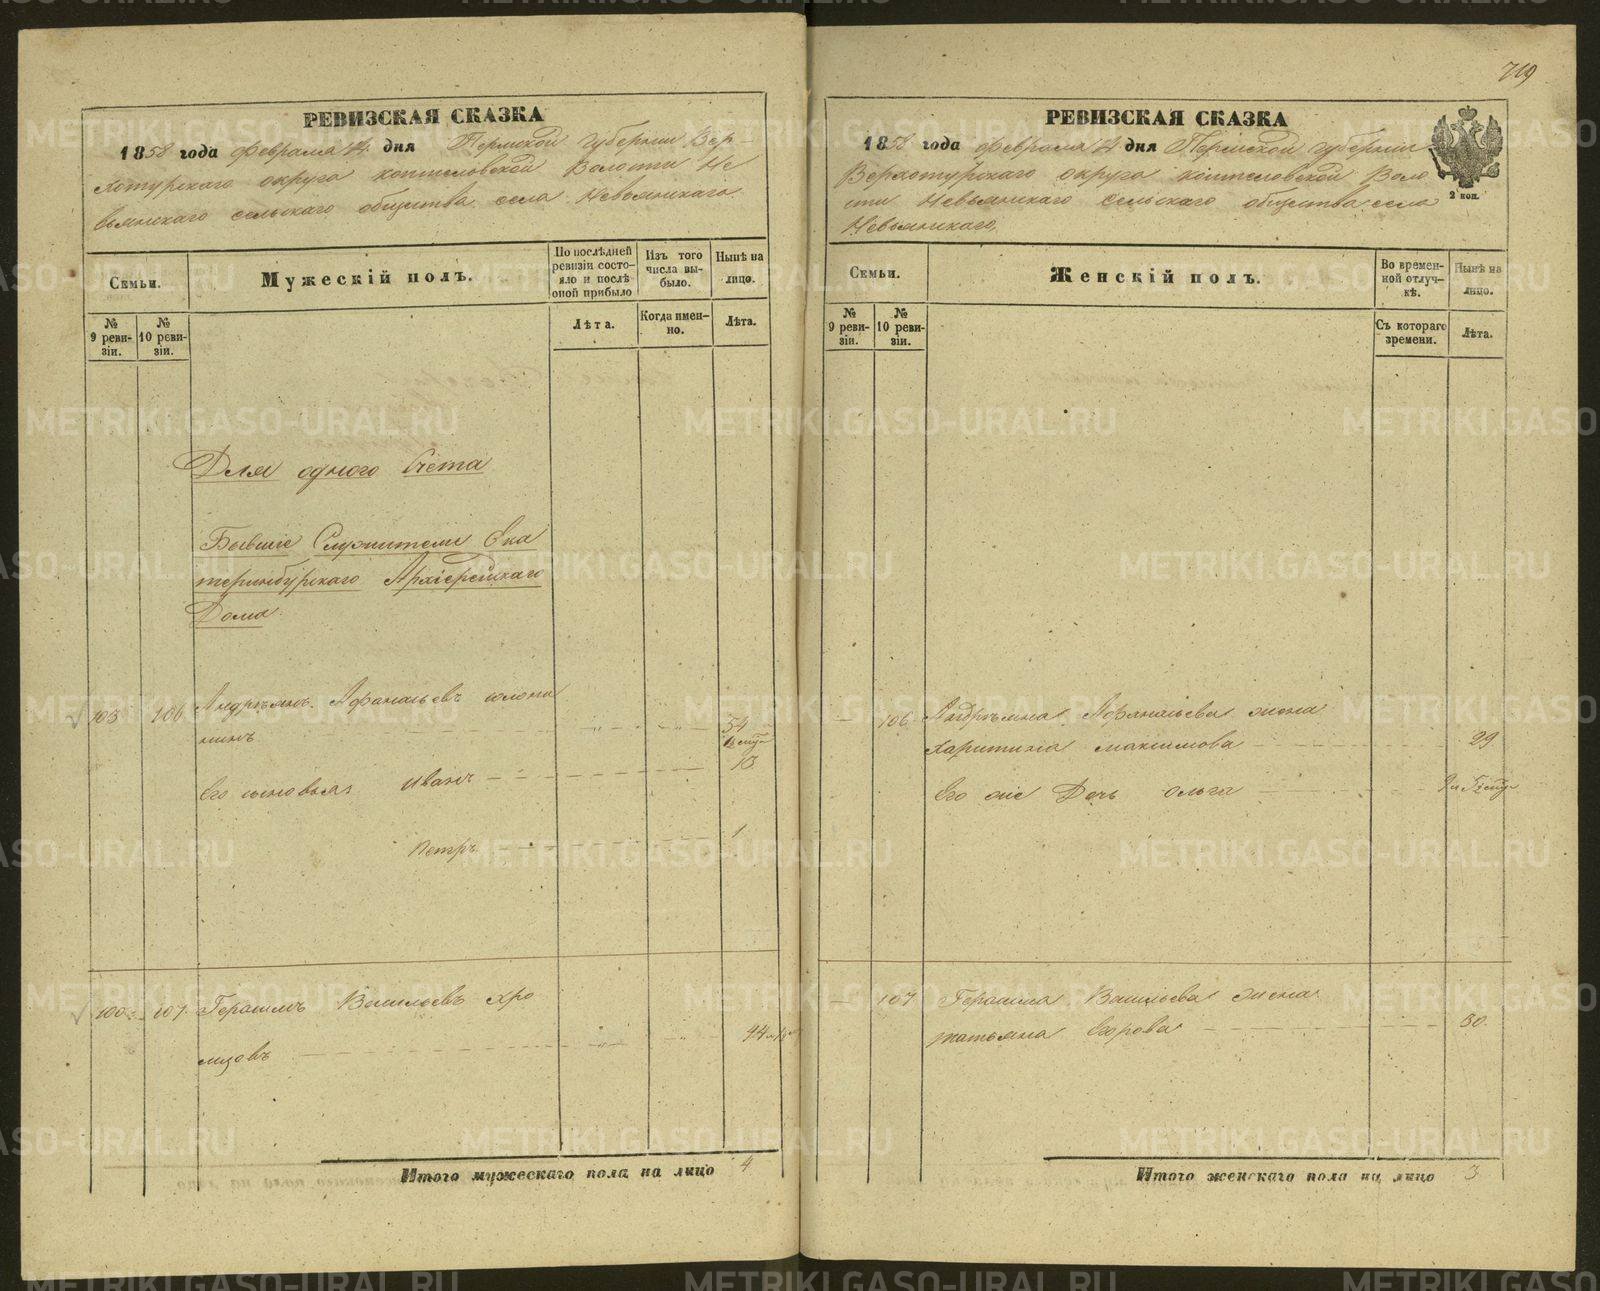 719
РЕВИЗСКАЯ СКАЗКА
1858 года февраля 14 дня Пермской губернии Вер-
хотурскаго округа коптеловской Волости Не
вьянскаго сельскаго общества села Невьянскаго.
Семьи.
Мужескій полъ.
По послѣдней ревизіи состо-
яло и послѣ оной прибыло
Изъ того числа вы-
было.
Нынѣ на лицо.
№ 9 реви-
зіи.
№ 10 реви-
зіи.
Лѣта.
Когда имен-
но.
Лѣта.
Для одного Счета
Бывшіе Служители Ека
теринбургскаго Архіерейскаго
Дома.
103 106 Андреянъ Афанасьевъ
нинъ 54
Его сыновья Иванъ
Петръ 1
100 107 Герасимъ Васильевъ Хро
мцовъ 44
Итого мужескаго пола на лицо 4
РЕВИЗСКАЯ СКАЗКА
1858 года февраля 14 дня Пермской губернии
Верхотурскаго округа коптеловской Воло
сти Невьянскаго сельскаго общества села
Невьянскаго.
2 коп.
Семьи.
Женскій полъ.
Во времен-
ной отлуч-
кѣ.
Нынѣ на лицо.
№ 9 реви-
зіи.
№ 10 реви-
зіи.
Съ котораго времени.
Лѣта.
— 106 Андреяна Афанасьева жена
Харитина максимова 29
Его же Дочь Ольга
— 107 Герасима Васильева жена
татьяна Егорова 30.
Итого женскаго пола на лицо 3
METRIKI.GASO-URAL.RU